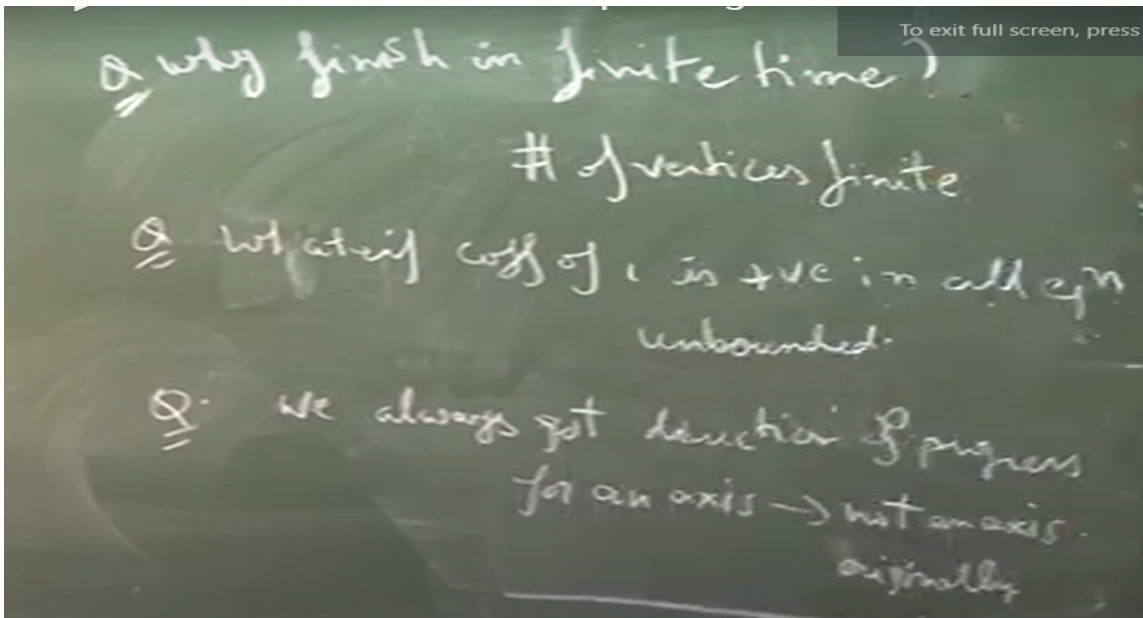 To exit full screen, press
Q why finish in finite time?
# of vertices finite
Q What if coff of is +ve in all eqn
unbounded.
Q. We always got direction of progress
for an axis → not an axis.
originally